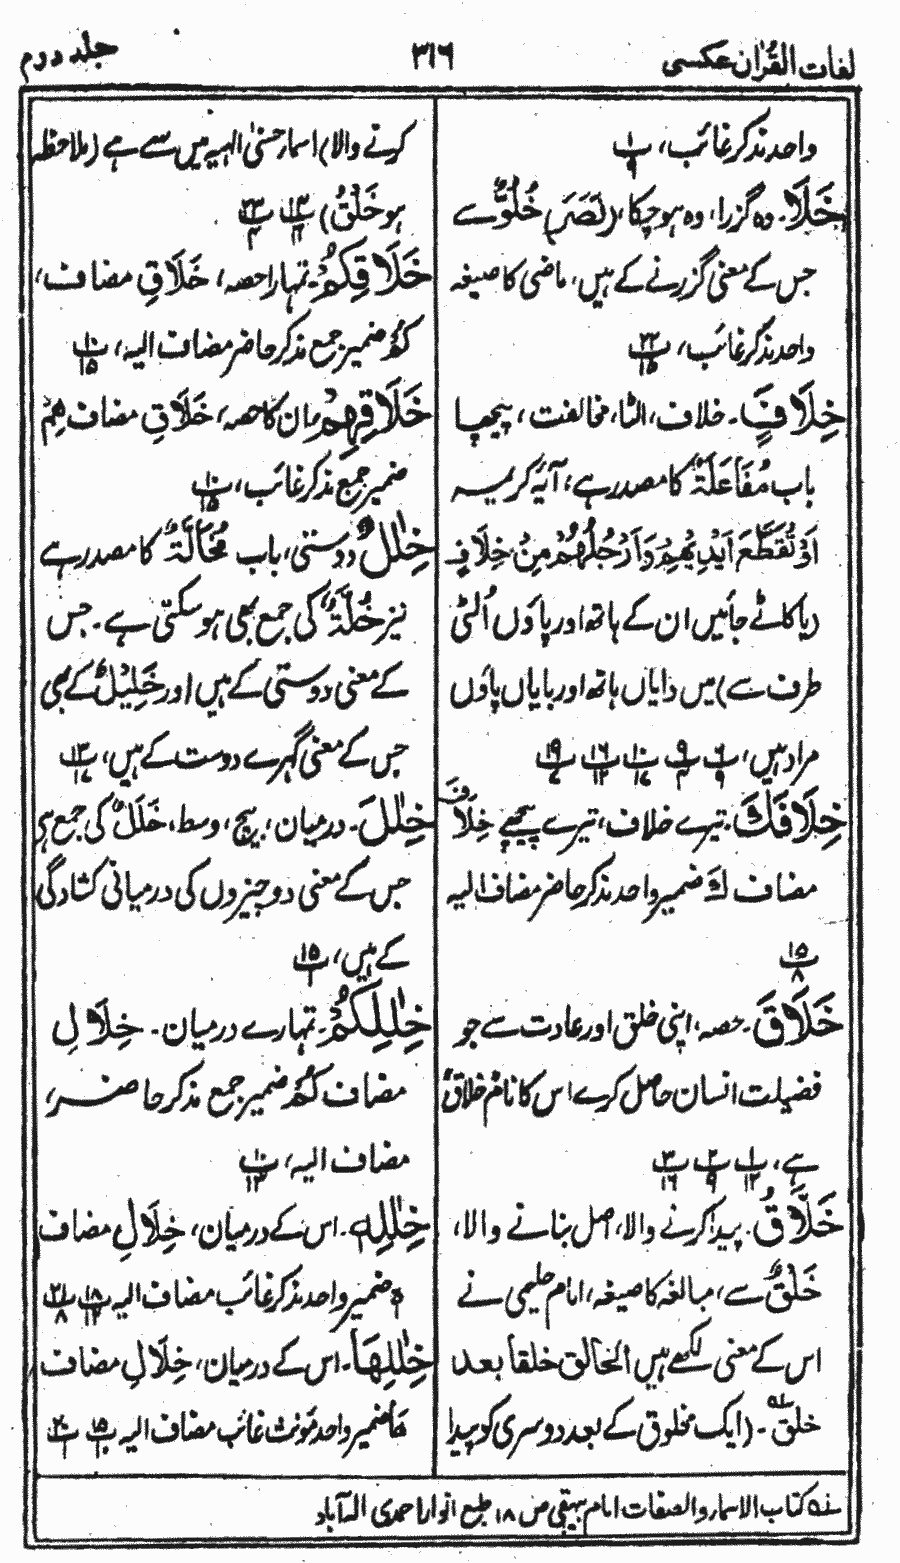 لغات القرآن عکسی
۳۱۶
جلد دوم
واحد مذکر غائب، پ ۱ ۹
خَلَا۔ وہ گزرا، وہ ہو چکا، (نَصَرَ) خُلُوٌّ سے
جس کے معنی گزرنے کے ہیں، ماضی کا صیغہ
واحد مذکر غائب، پ ۲۲ ۱۵
خِلَافٍ۔ خلاف، الٹا، مخالفت، پیچھا
باب مُفَاعَلَۃٌ کا مصدر ہے، آیۂ کریمہ
اَوْ تُقَطَّعَ اَیْدِیْھِمْ وَاَرْجُلُھُمْ مِنْ خِلَافٍ
(یا کاٹے جائیں ان کے ہاتھ اور پاؤں الٹی
طرف سے) میں دایاں ہاتھ اور بایاں پاؤں
مراد ہیں، پ ۶ ۹ پ ۹ ۴ پ ۱۰ ۱۴ پ ۱۶ ۱۲ پ ۱۹ ۷
خِلَافَكَ۔ تیرے خلاف، تیرے پیچھے خِلَافَ
مضاف كَ ضمیر واحد مذکر حاضر مضاف الیہ
پ ۱۵ ۸
خَلَاقَ۔ حصہ، اپنی خلق اور عادت سے جو
فضیلت انسان حاصل کرے اس کا نام خلاقٌ
ہے، پ ۱ ۱۲ پ ۲ ۹ پ ۳ ۱۶
خَلَّاقُ۔ پیدا کرنے والا، اصل بنانے والا،
خَلْقٌ سے، مبالغہ کا صیغہ، امام حلیمی نے
اس کے معنی لکھے ہیں الخالق خلقاً بعد
خلق ۵۔ (ایک مخلوق کے بعد دوسری کو پیدا
کرنے والا) اسمار حسنیٰ الٰہیہ میں سے ہے (ملاحظہ
ہو خَلْقُ) پ ۱۳ ۶ پ ۲۳ ۴
خَلَاقِكُمْ۔ تمہارا حصہ، خَلَاقِ مضاف،
كُمْ ضمیر جمع مذکر حاضر مضاف الیہ، پ ۱۰ ۱۵
خَلَاقِهِمْ۔ ان کا حصہ، خَلَاقِ مضاف هِمْ
ضمیر جمع مذکر غائب، پ ۱۰ ۱۵
خِلٰلٌ۔ دوستی، باب مُخَالَّۃٌ کا مصدر ہے
نیز خُلَّۃٌ کی جمع بھی ہو سکتی ہے۔ جس
کے معنی دوستی کے ہیں اور خَلِیْلٌ کے بھی
جس کے معنی گہرے دوست کے ہیں، پ ۱۳ ۱۷
خِلٰلَ۔ درمیان، بیچ، وسط، خَلَلٌ کی جمع ہے
جس کے معنی دو چیزوں کی درمیانی کشادگی
کے ہیں، پ ۱۵ ۱
خِلٰلَكُمْ۔ تمہارے درمیان۔ خِلَالِ
مضاف كُمْ ضمیر جمع مذکر حاضر،
مضاف الیہ، پ ۱۰ ۱۳
خِلٰلِهٖ۔ اس کے درمیان، خِلَالِ مضاف
ہٖ ضمیر واحد مذکر غائب مضاف الیہ پ ۱۸ ۱۲ پ ۲۱ ۸
خِلٰلِهَا۔ اس کے درمیان، خِلَالِ مضاف
ھَا ضمیر واحد مؤنث غائب مضاف الیہ پ ۱۵ ۱ پ ۲۰ ۱
۵ کتاب الاسمار والصفات امام بیہقی ص ۱۸ طبع انوار احمدی الہ آباد